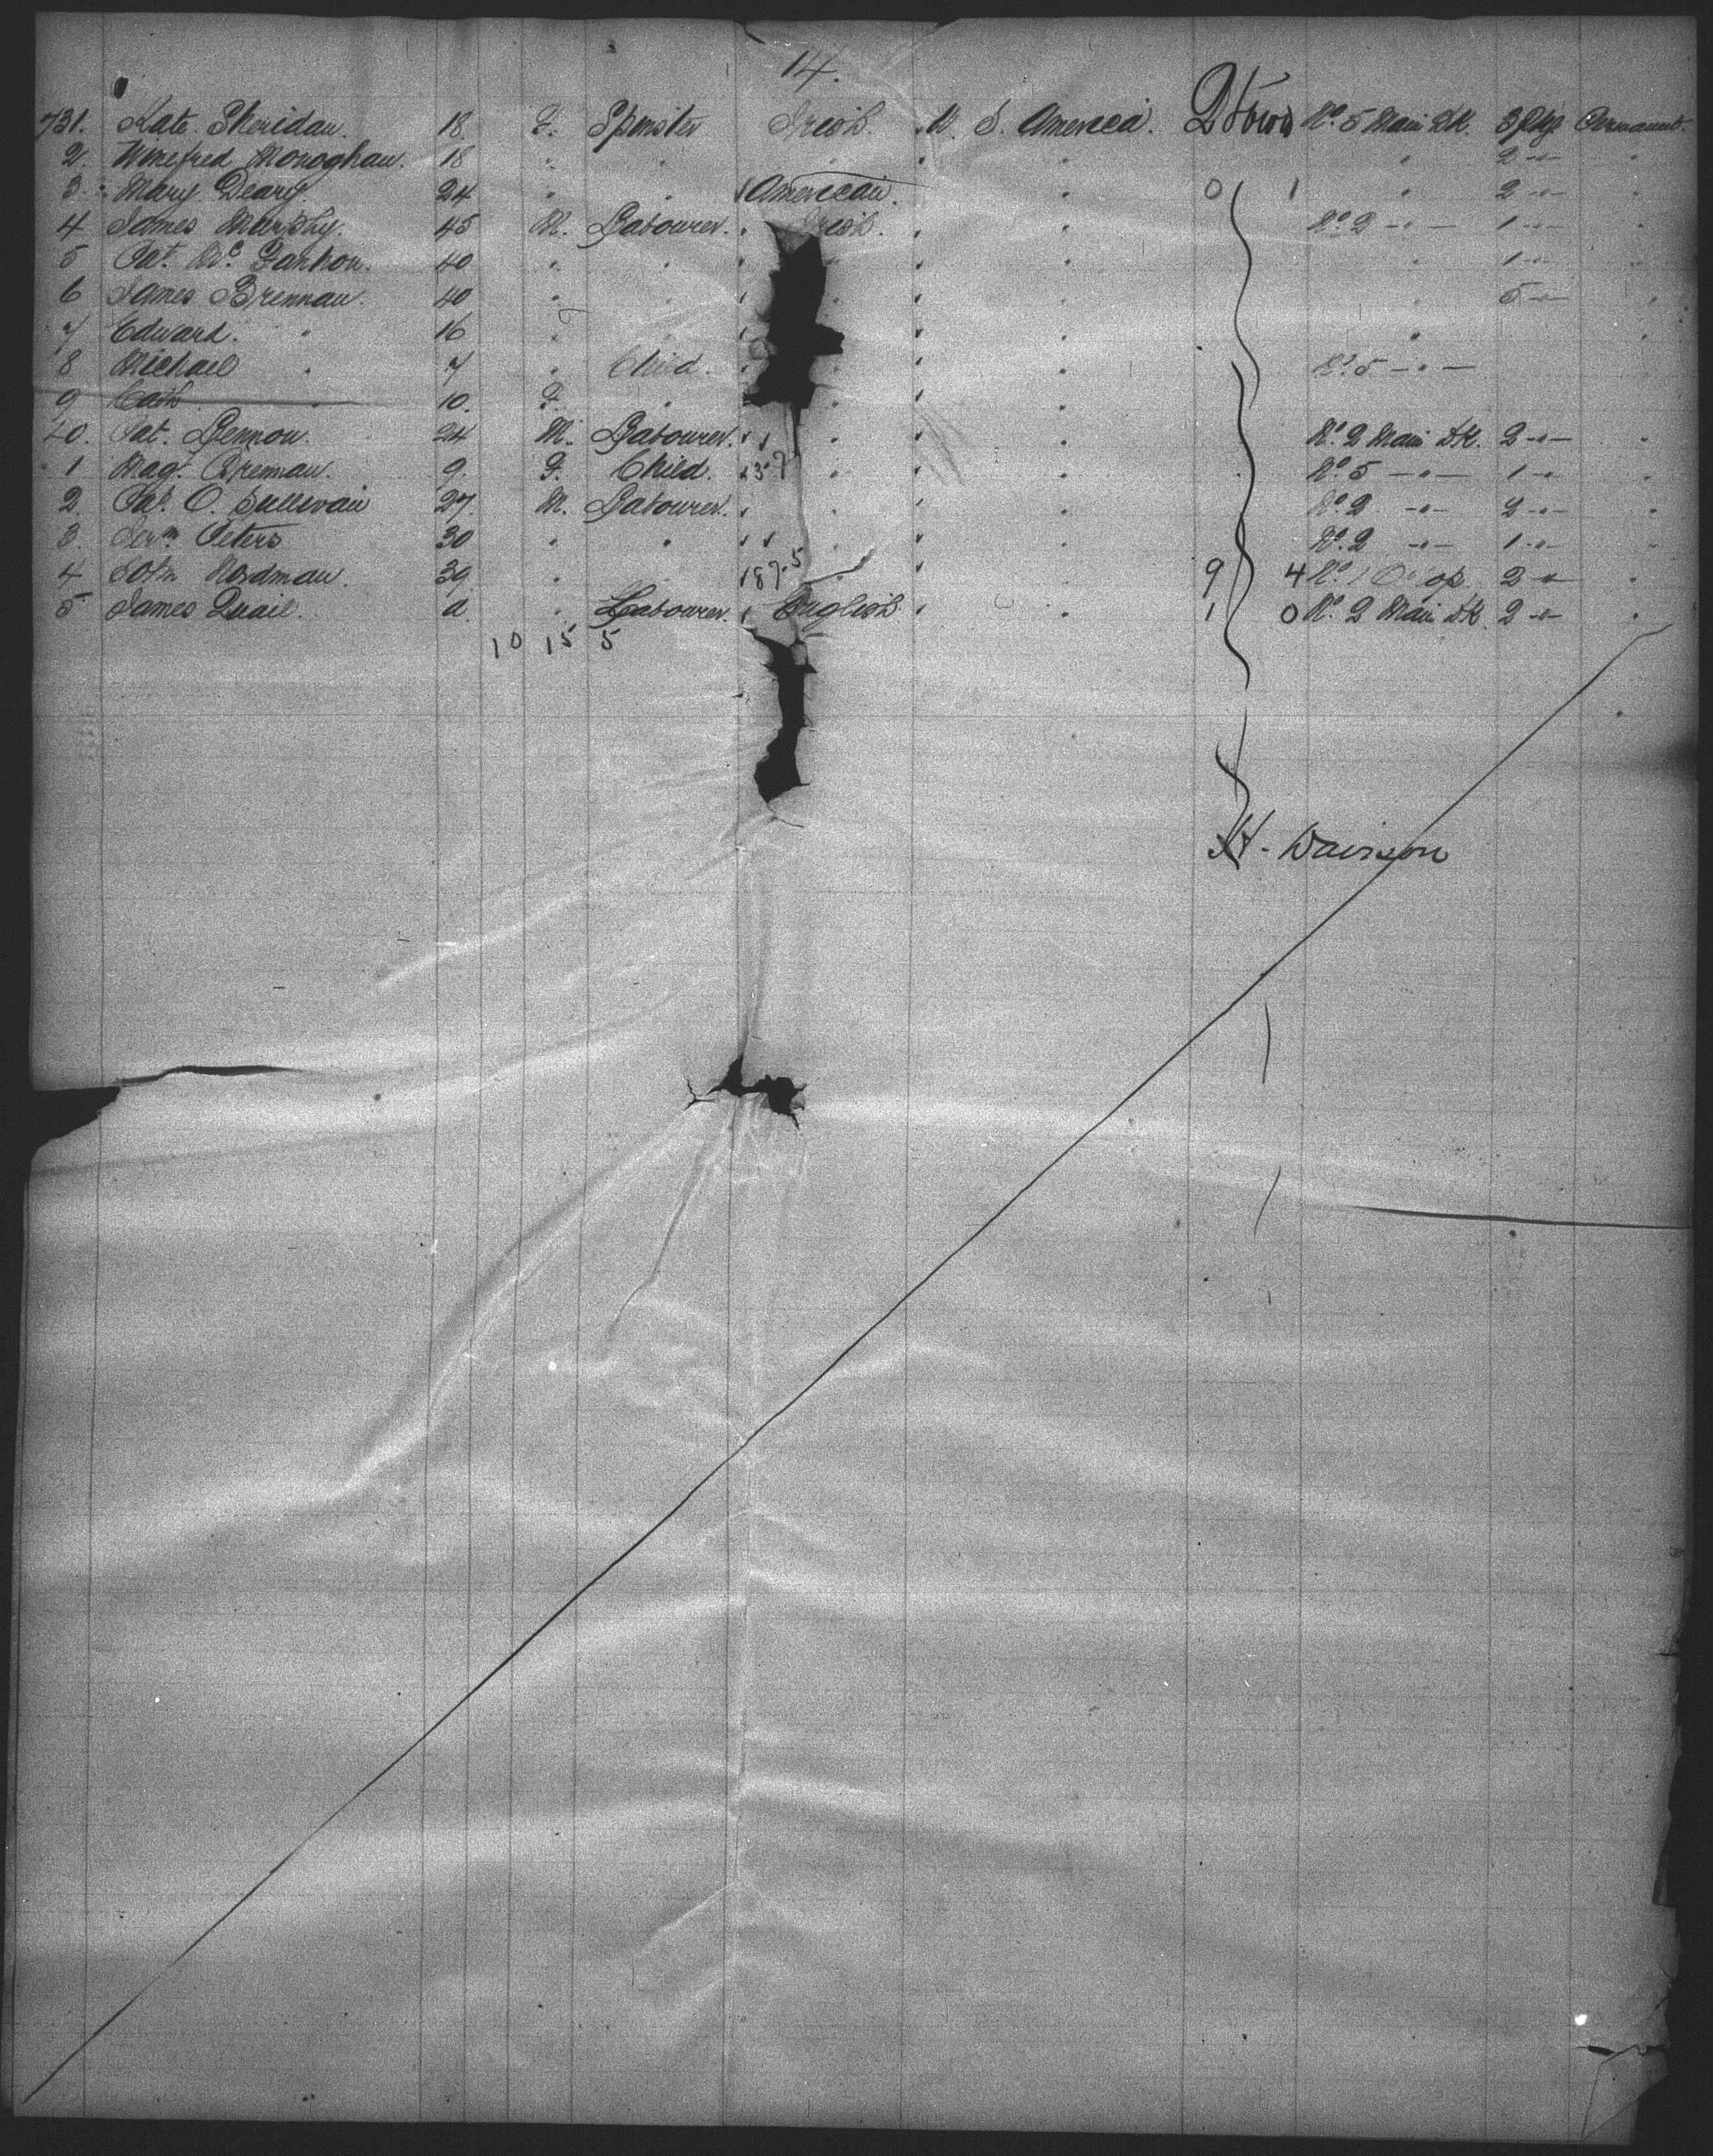 14.
731. Kate Sheridan. 18 F. Spinster Irish. U. S. America. No. 5 Main Dk. 3 Pkgs Permanent.
2. Winefred Monoghan. 18 " " " " " " 2 -"- "
3. Mary Deary. 24 " American. " 0 1 " 2 -"- "
4 James Murphy. 45 M. Labourer. Irish. " No. 2 -"- 1 -"- "
5 Pat. Mc. 40 " " " " " 1 -"- "
6 James Brennan. 40 " " " " " 5 -"- "
7 Edward. " 16 " " " " "
8 Michael " 7 " Child. " " No. 5 -"-
9 " 10. F. " " "
40. Pat. Lennon. 24 M. Labourer. " " No. 2 Main Dk. 2 -"- "
1 Magt. Brennan. 9. F. Child. 357 " " No. 5 -"- 1 -"- "
2. Pat. O. Sullivan 27. M. Labourer. " " No. 2 -"- 2 -"- "
3. Peters 30 " " " " No. 2 -"- 1 -"- "
4 John Nordman. 39 " 87.5 " 9 4 No. 1 2 -"- "
5 James Quail. a. " Labourer English. " 1 0 No. 2 Main Dk. 2 -"- "
10 15 5